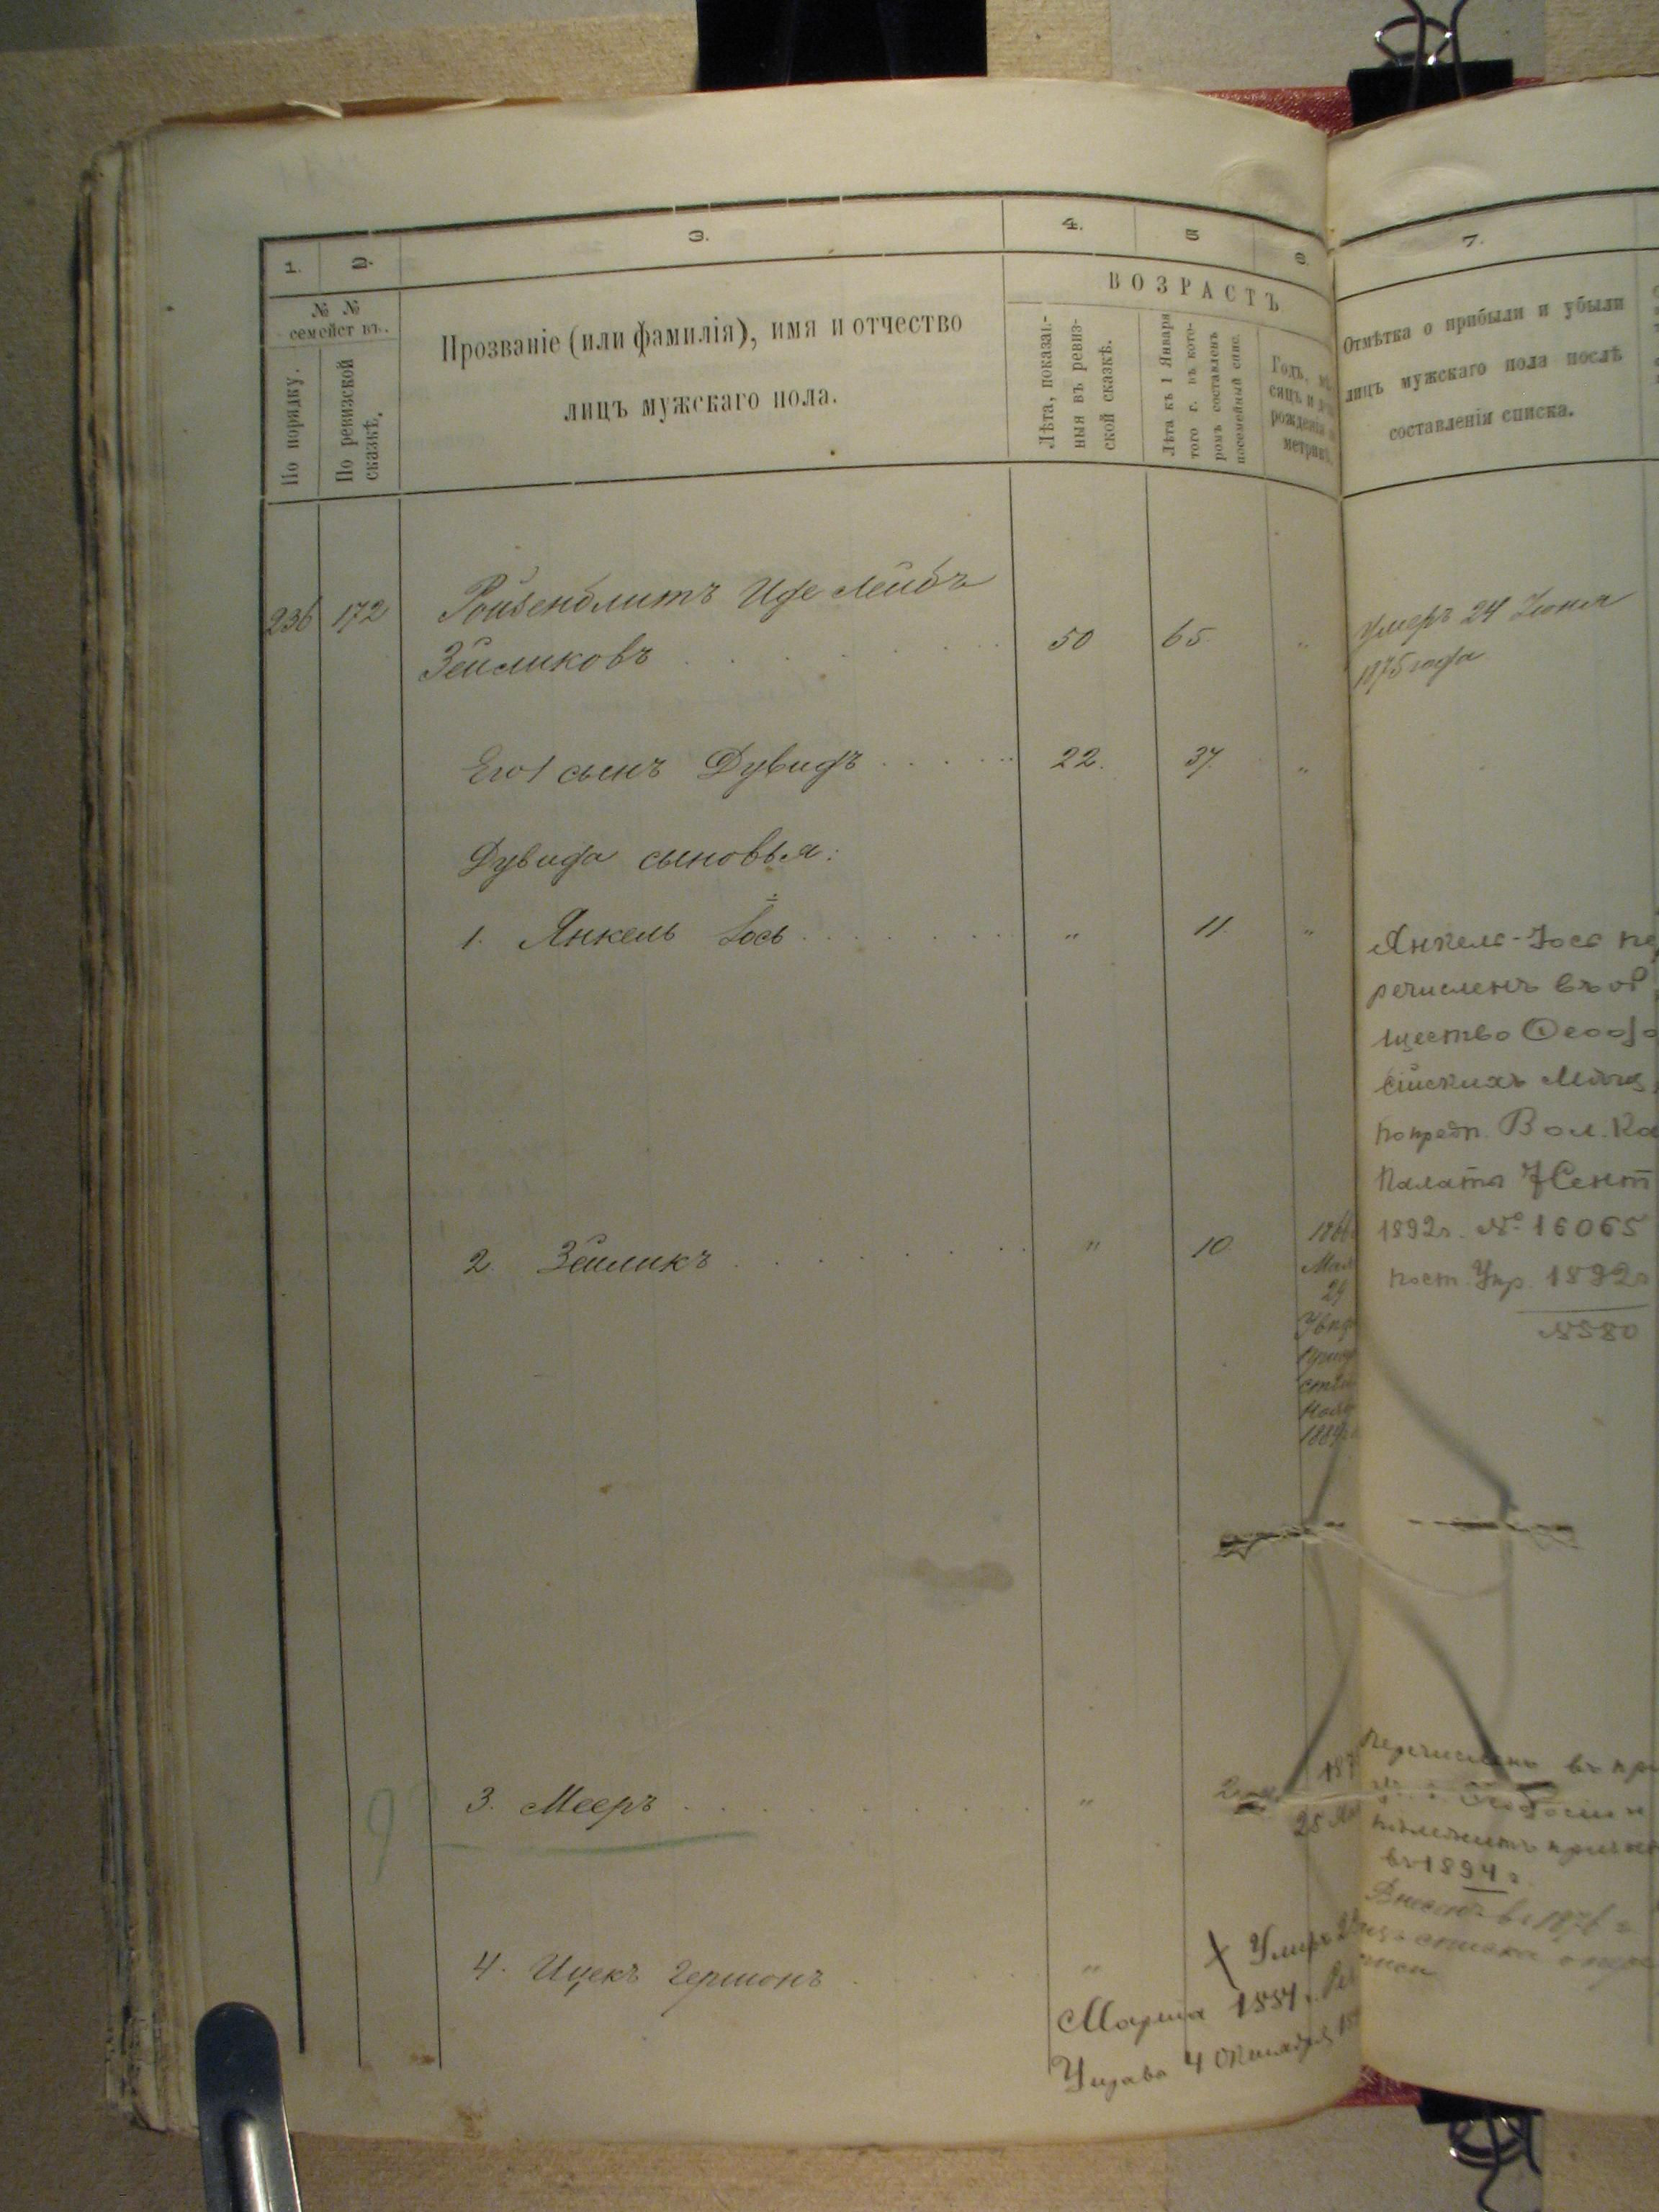 1. 2. 3. 4. 5 6. 7.
№ №
семействъ.
По порядку.
По ревизской сказкѣ.
Прозваніе (или фамилія), имя и отчество
лицъ мужскаго пола.
ВОЗРАСТЪ
Лѣта, показан-
ныя въ ревиз-
ской сказкѣ.
Лѣта къ 1 Января
того г. въ кото-
ромъ составленъ
посемейный спис.
Годъ, мѣ
сяцъ и
рожденія
метрикѣ
Отмѣтка о прибыли и убыли
лицъ мужскаго пола послѣ
составленія списка.
236 172 Ройзенблитъ Иде Лейбъ
Зейликовъ 50 65 "
Умеръ 24 Іюня
1875 года
Его 1 сынъ Дувидъ 22. 37. "
Дувида сыновья:
1. Янкель Іось " 11. "
Янкель-Іось пе
речисленъ въ об
щество Ѳеодо
сійскихъ Мѣщ
по предп. Вол. Ка
Палаты 7 Сент
1892г. № 16065
пост. Упр. 1892г
№580
2. Зейликъ " 10
1866
Мая
29
1889
3. Мееръ "
187
28
92
Перечисленъ въ
въ 1894 г.
4. Ицекъ Гершонъ "
Умеръ
Марта 1884 г.
4 Октября